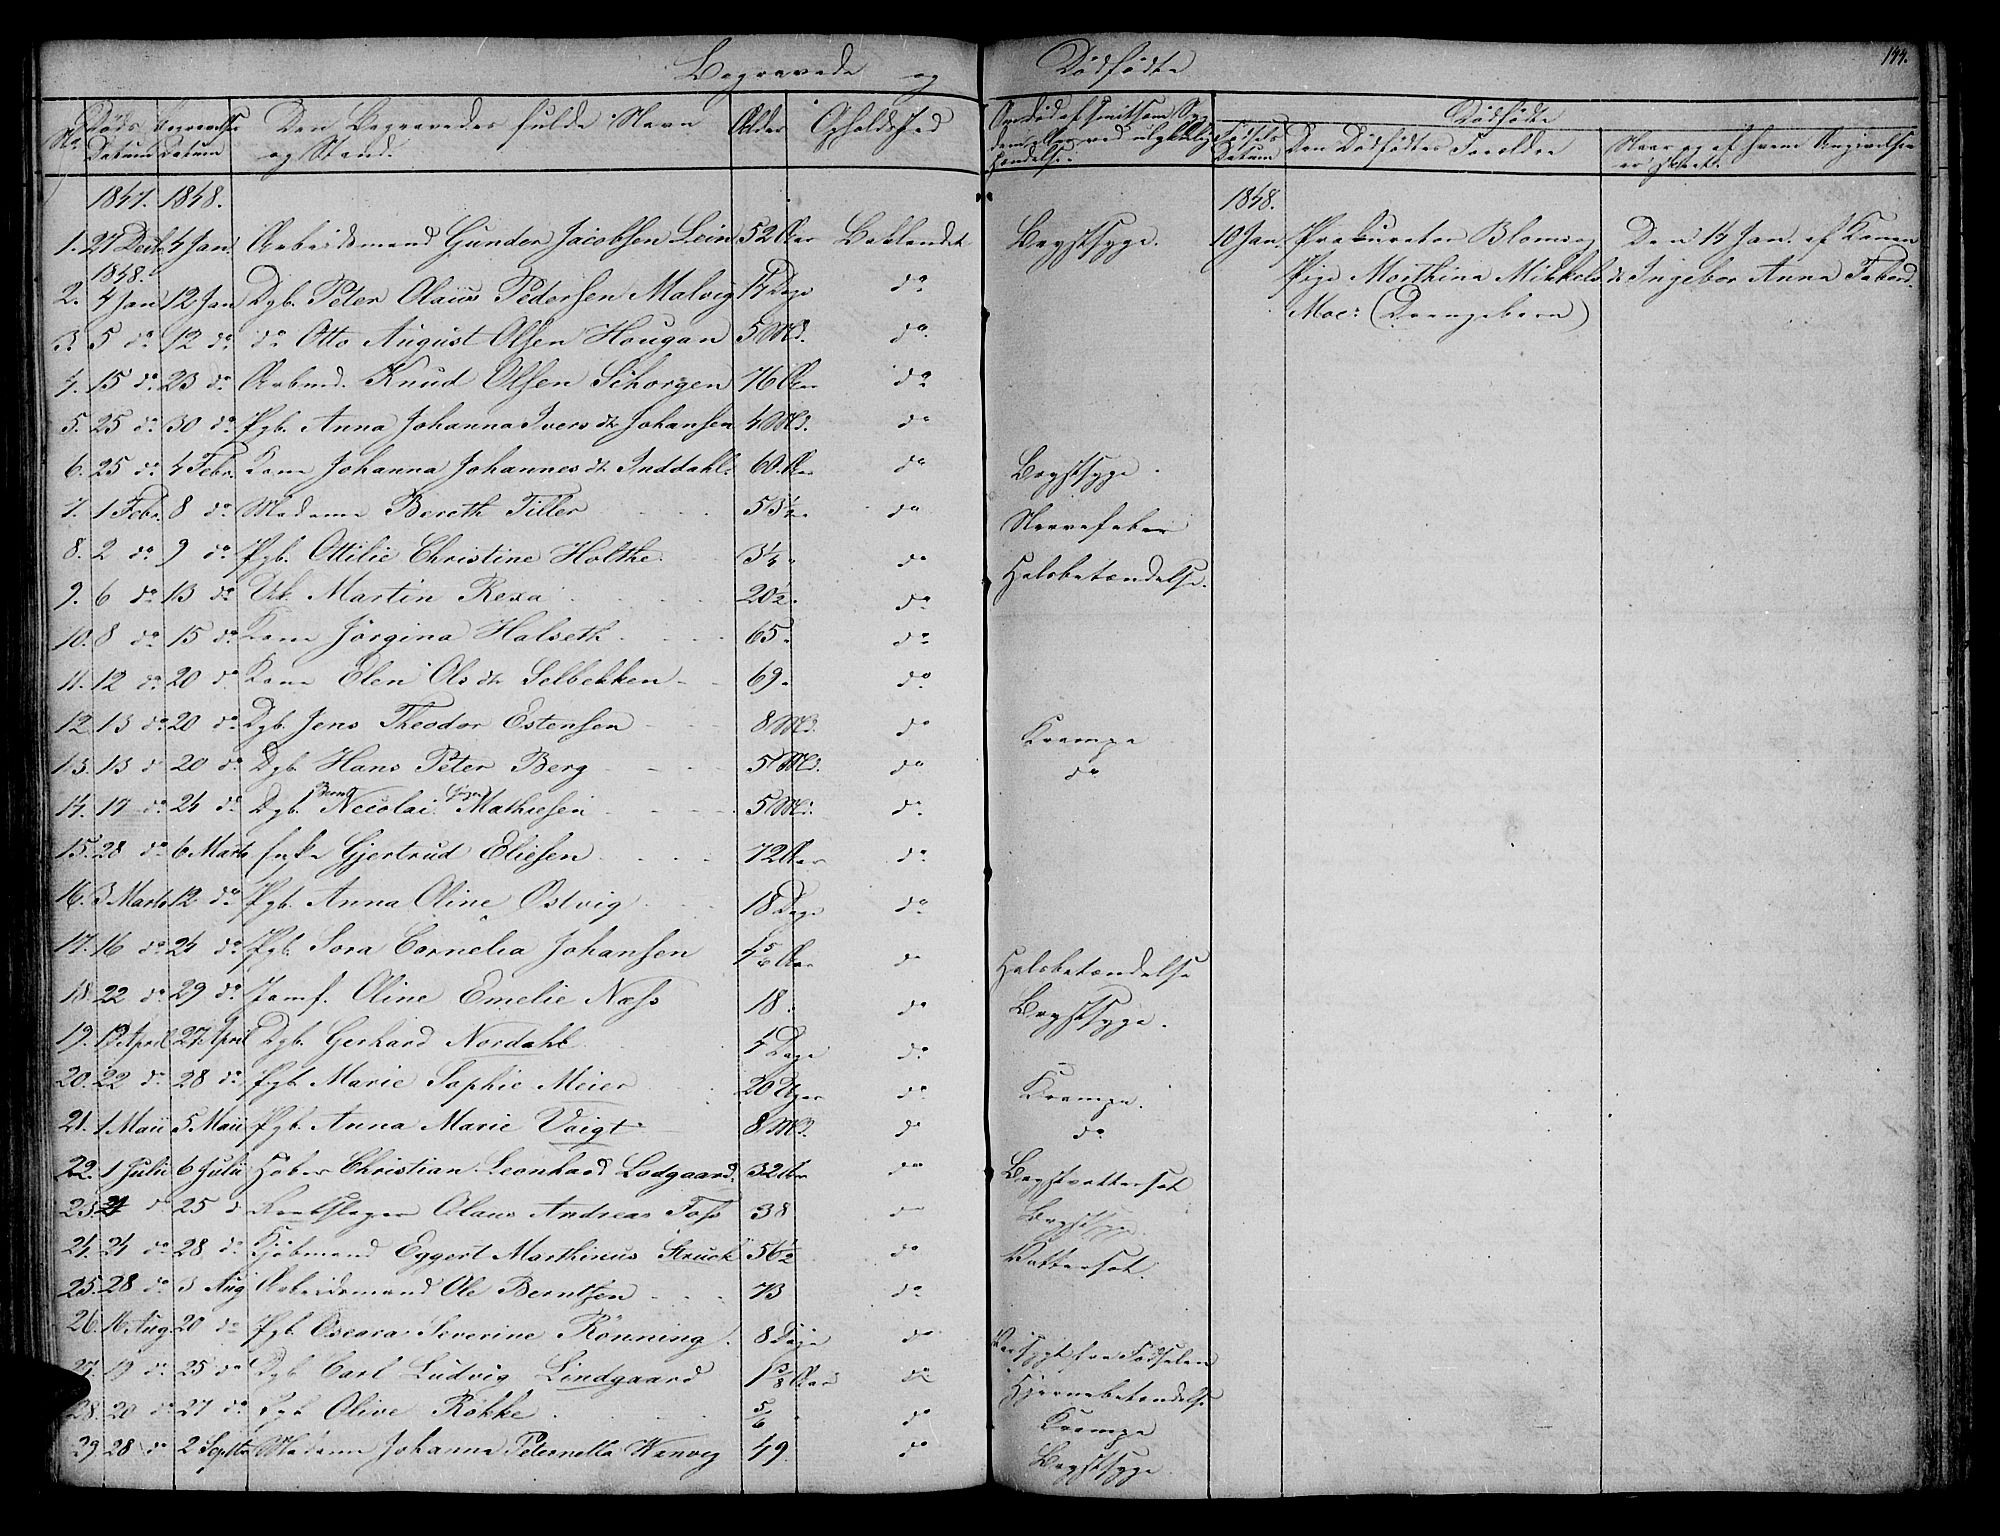 Begravede og Dødfødte
144.
No. Døds Datum Begravelses Datum Den Begravedes fulde Navn og Stand. Alder Opholdsted Om død af smitsom Syg- dom eller ved ulykkelig Hændelse. Dødfødte
Fødsels Datum Den Dødfødtes Forældre Naar og af hvem Angivelsen er skeet.
1847. 1848. 1848.
1. 27 Decbr 4 Jan. Arbeidsmand Gunder Jacobsen Lein 52 Aar Baklandet Brystsyge. 10 Jan. Prokurator Blom og Den 14 Jan. af Konen
1848.
2. 4 Jan 12 Jan Dgb. Peter Olaus Pedersen Malvig 17 Dage do Pige Marthina Mikkels dr Ingebor Anna Fabord.
Moe: (Drengebarn)
3. 5 do 12 do do Otto August Olsen Hougan 5 Md. do
4. 15 do 23 do Arbmd. Knud Olsen Schorgen 76 Aar do
5. 25 do 30 do Pgb. Anna Johanna Ivers dr Johansen 4 Md. do
6. 25 do 4 Febr. Kone Johanna Johannes dr Inddahl 60 Aar do Brystsyge.
7. 1 Febr. 8 do Madame Bereth Tiller 53½ do Nervefeber
8. 2 do 9 do Pgb. Ottilie Christine Holthe 3¼ do Halsbetændelse.
9. 6 do 13 do Martin Rexa 20½ do
10. 8 do 15 do Kone Jørgina Halseth 65 do
11. 12 do 20 do Kone Elen Ols dr Selbekken 69 do
12. 13 do 20 do Dgb. Jens Theodor Estensen 8 Md. do Krampe
13. 13 do 20 do Dgb. Hans Peter Berg 5 Md. do do
14. 17 do 24 do Dgb. Nicolai Mathiesen 5 Md. do
15. 28 do 6 Marts Enke Gjertrud Eliesen 72 Aar do
16. 3 Marts 12 do Pgb. Anna Oline Østvig 18 Dage do
17. 16 do 24 do Pgb. Sora Cornelia Johansen 4 5/6 Aar do Halsbetændelse
18. 22 do 29 do Jomf. Oline Emelie Næss 18 do Brystsyge.
19. 13 April 27 April Dgb. Gerhard Nordahl 4 Dage do
20. 22 do 28 do Pgb. Marie Sophie Meier 20 Uger do Krampe.
21. 1 Maii 5 Maii Pgb. Anna Marie Voigt 8 Md. do do
22. 1 Julii 6 Julii Christian Leonhard Lodgaard 32 Aar do Brystvattersot
23. 21 do 25 do Rebslager Olaus Andreas Foss 38 do Brystsyge.
24. 24 do 28 do Kjøbmand Eggert Marthinus Struck 56½ do Vattersot.
25. 28 do 3 Aug Arbeidsmand Ole Berntsen 73 do
26. 16 Aug. 20 do Pgb. Oscara Severine Rönning 8 Dage do fra Fødselen
27. 19 do 25 do Dgb. Carl Ludvig Lindgaard 1 3/8 Aar do Hjernebetændelse
28. 20 do 27 do Pgb Olive Røkke 5/6 do Krampe
29 28 do 2 Septbr Madame Johanna Peternella Wanvig 49 do Brystsyge.